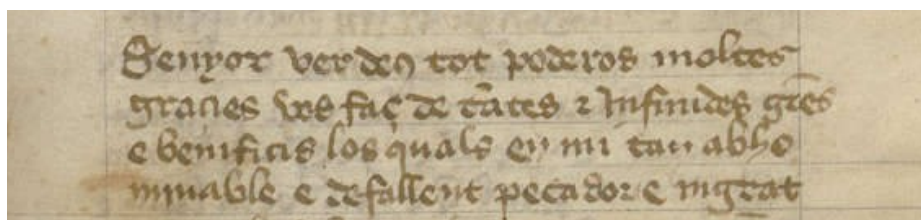 Senyor ver deꝯ tot poderos moltes
gracies vos faç de tātes ⁊ Infinides gr̄es
e benificis los quals en mi tan abho
minable e defallent pecador e ingrat